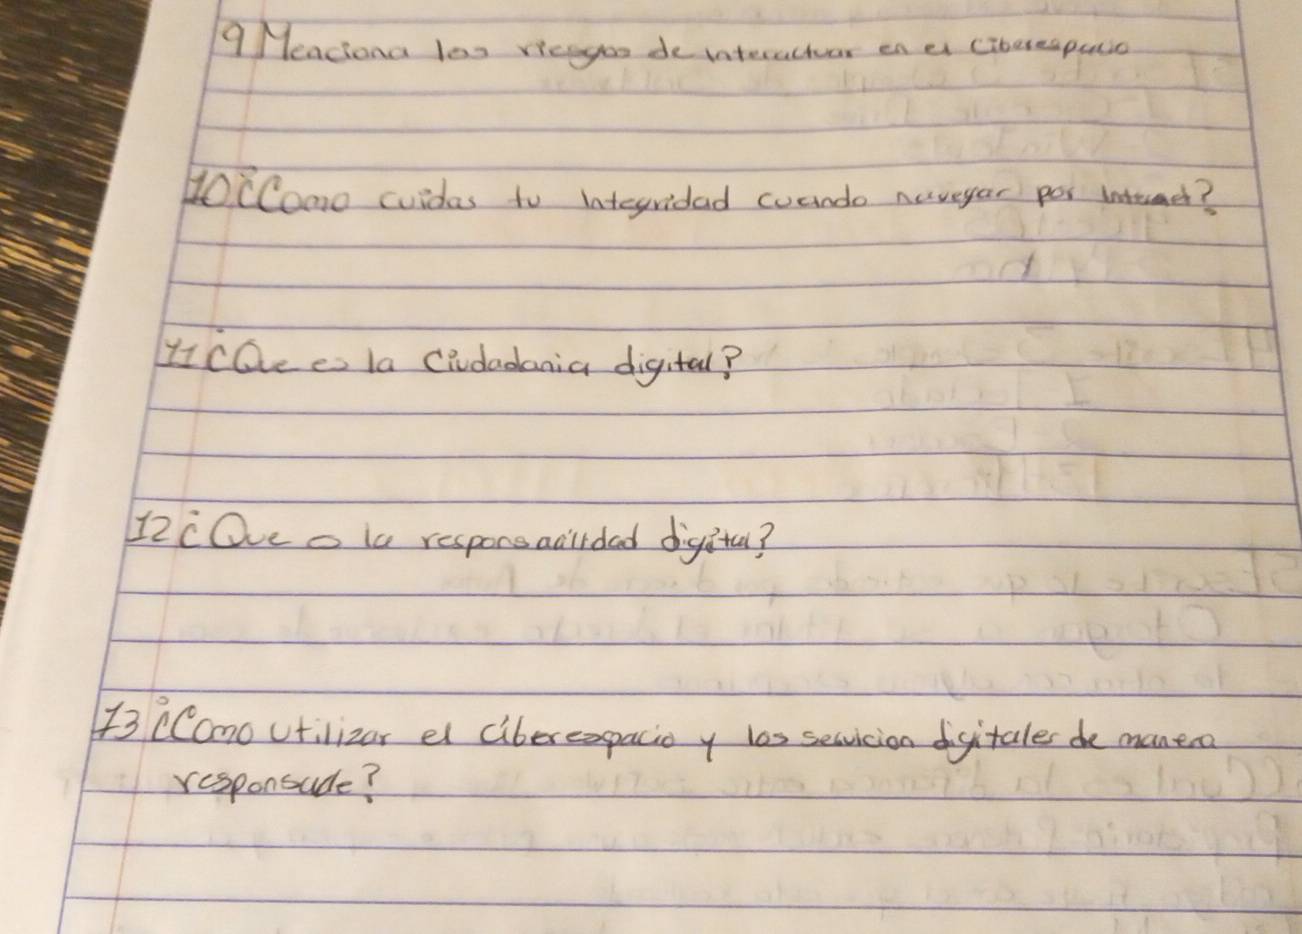 9 Menciona los riesgos de interactuar en el ciberespacio
10 ¿Como cuidas tu integridad cuando navegar por internet?
11 ¿Que es la Ciudadania digital?
12 ¿Que es la responsabilidad digital?
13 ¿Como utilizar el ciberespacio y los servicion digitales de manera
responsable?